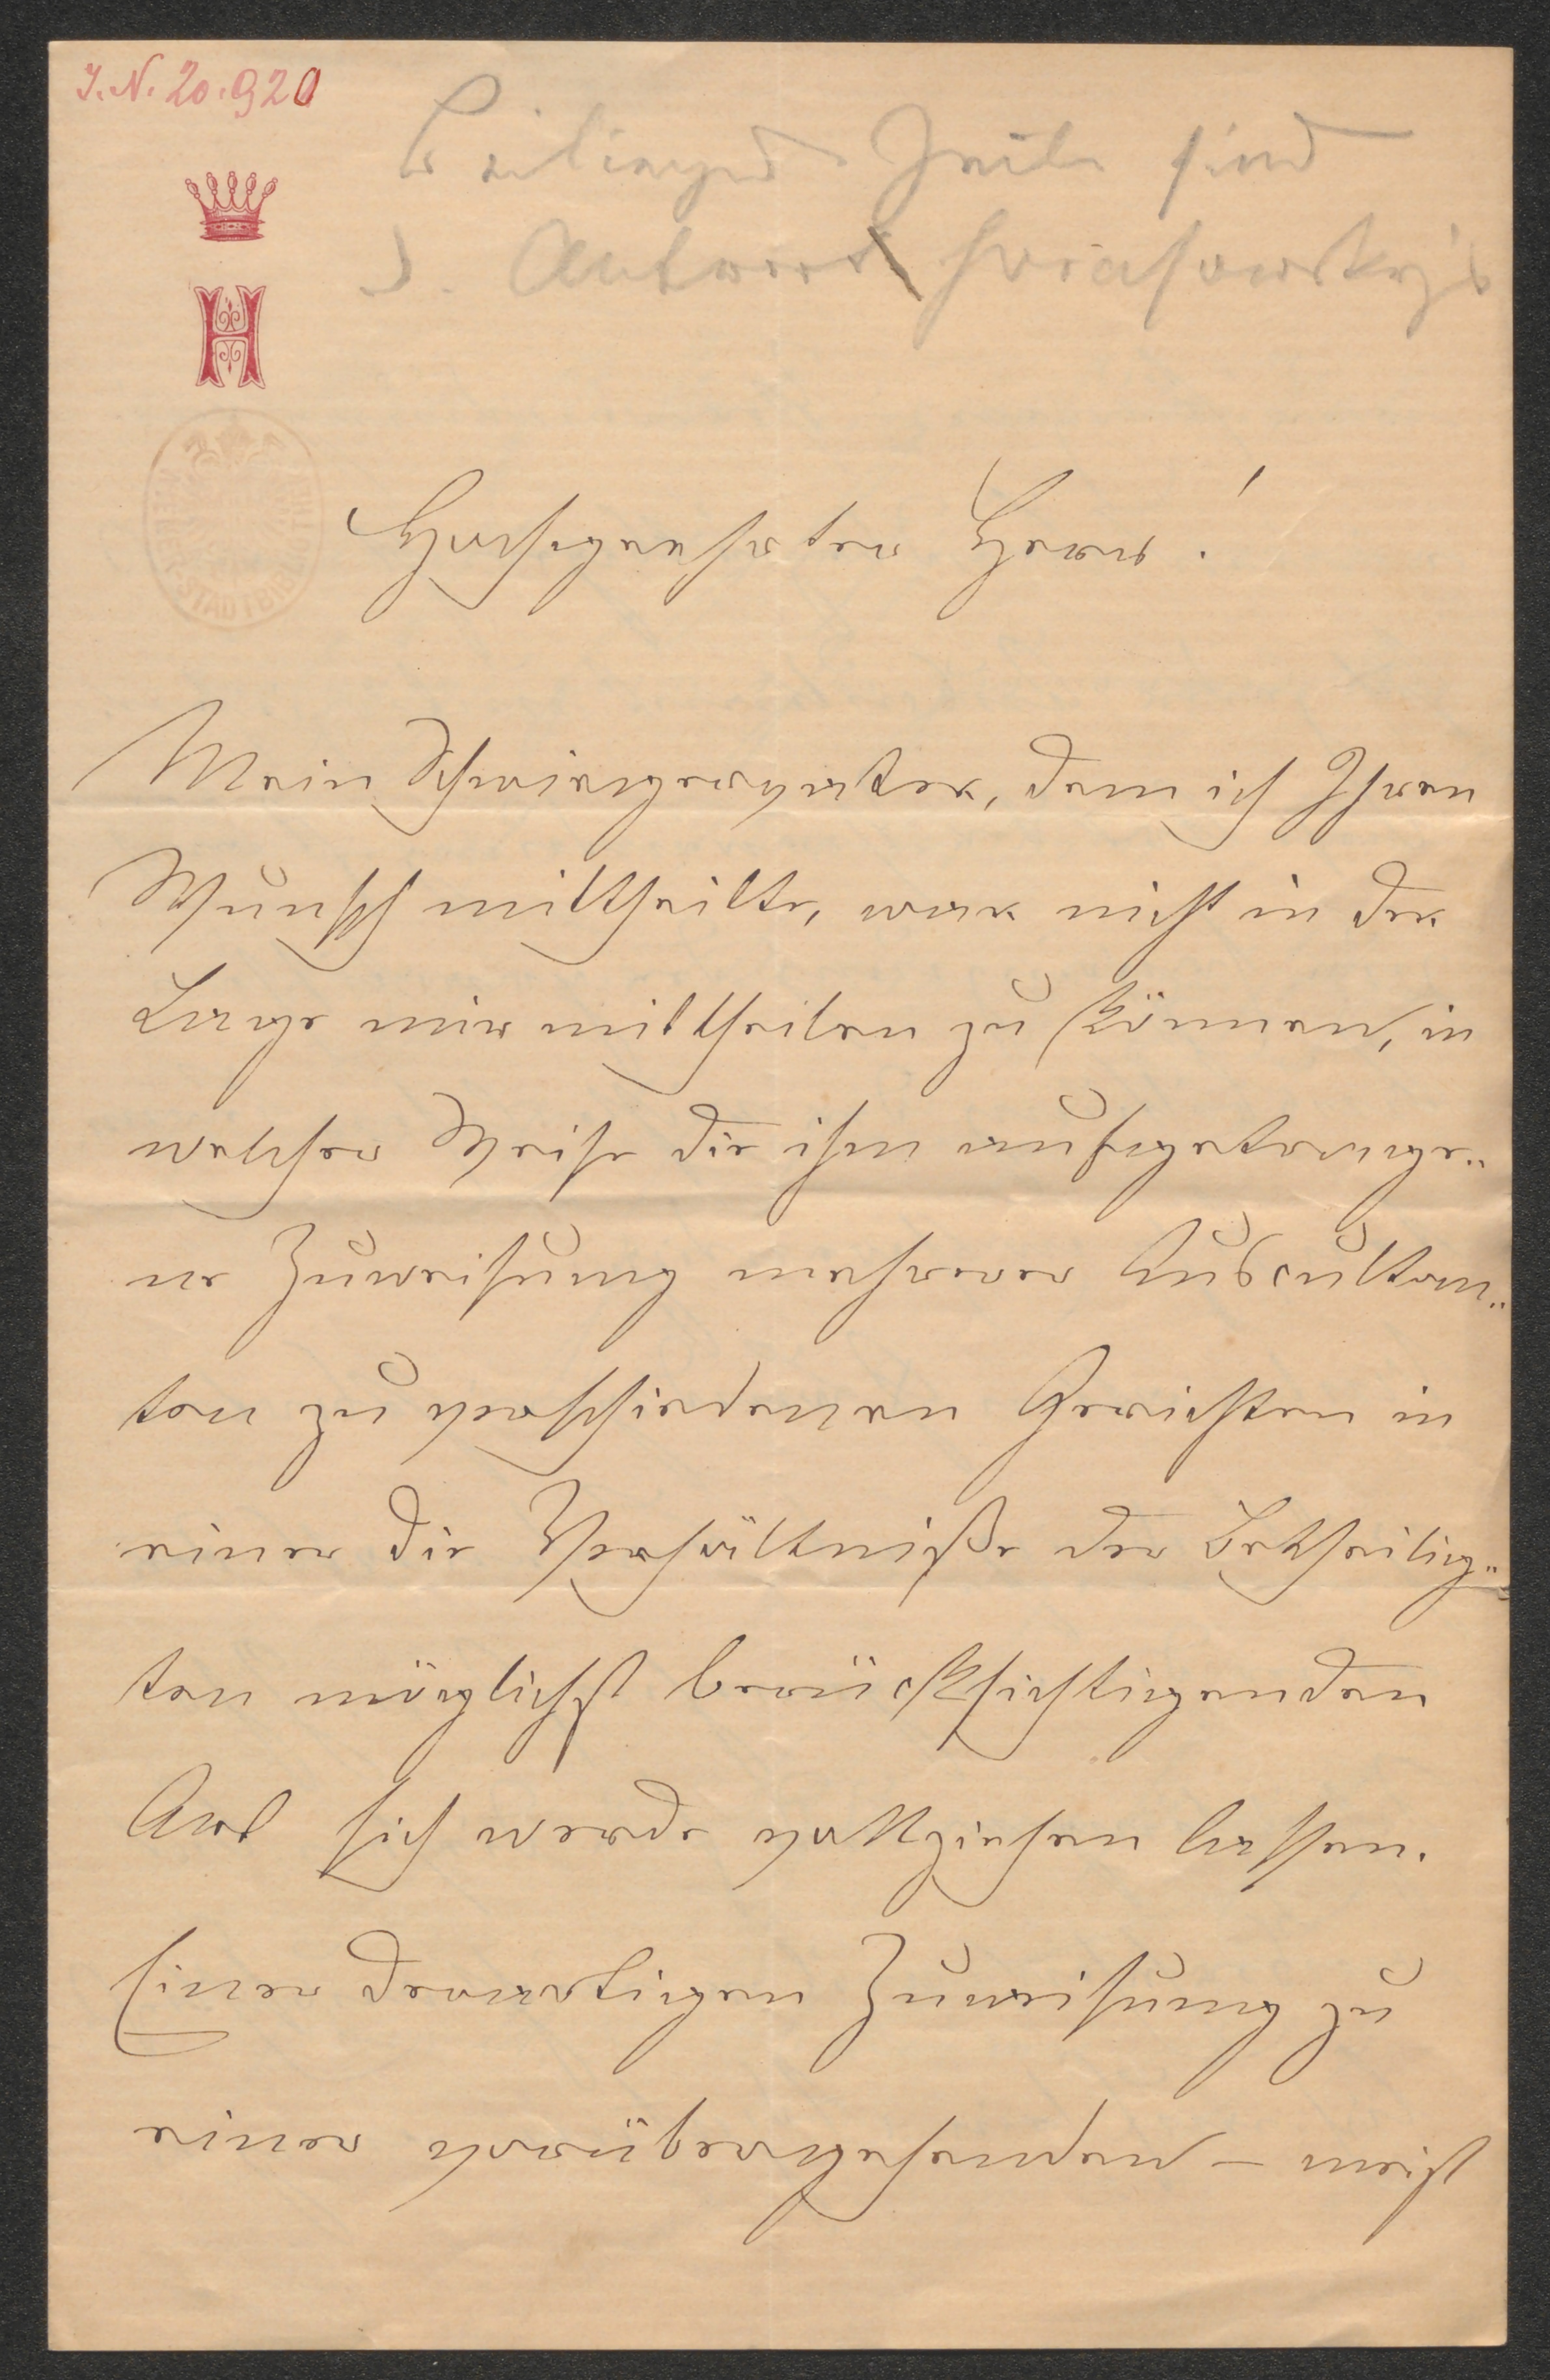 J.N. 20.920
Beiliegend Zeile sind
d. Antwort
H
STADTBIBL
Hochgeehrter Herr!
Mein Schwiegervater, dem ich Ihren
Wunsch mittheilte, war nicht in der
Lage mir mittheilen zu können, in
welcher Weise die ihm aufgetrage„
ne Zuweisung mehrerer Auscultan„
ten zu verschiedenen Gerichten in
einer die Verhältniße der Betheilig„
ten möglichst berücksichtigenden
Art sich werde vollziehen lassen.
Einer derartigen Zuweisung zu
einer vorübergehenden – meist